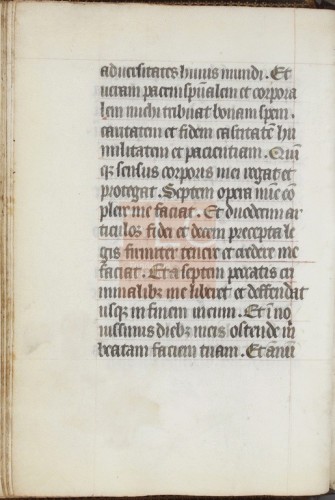 aduersitates huius mundi. Et
ueram pacem sp̃ualem et corpora
lem michi tribuat bonam spem.
caritatem et fidem castitatẽ hu
militatem et pacientiam. Quīn
qꝫ sensus corporis mei regat et
protegat. Septem opera mīe cō
plere me faciat. Et duodecim ar
ticulos fidei et decem precepta le
gis firmiter tenere et credere me
faciat. Et a septem peccatis cri
minalibꝫ me liberet et deffendat
usqꝫ in finem meum. Et ī no
uissimis diebꝫ meis ostende m̄
beatam faciem tuam. Et annū